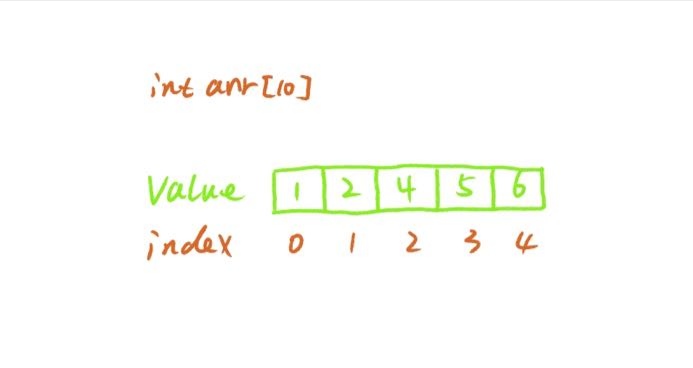 int arr[10]
Value 1 2 4 5 6
index 0 1 2 3 4